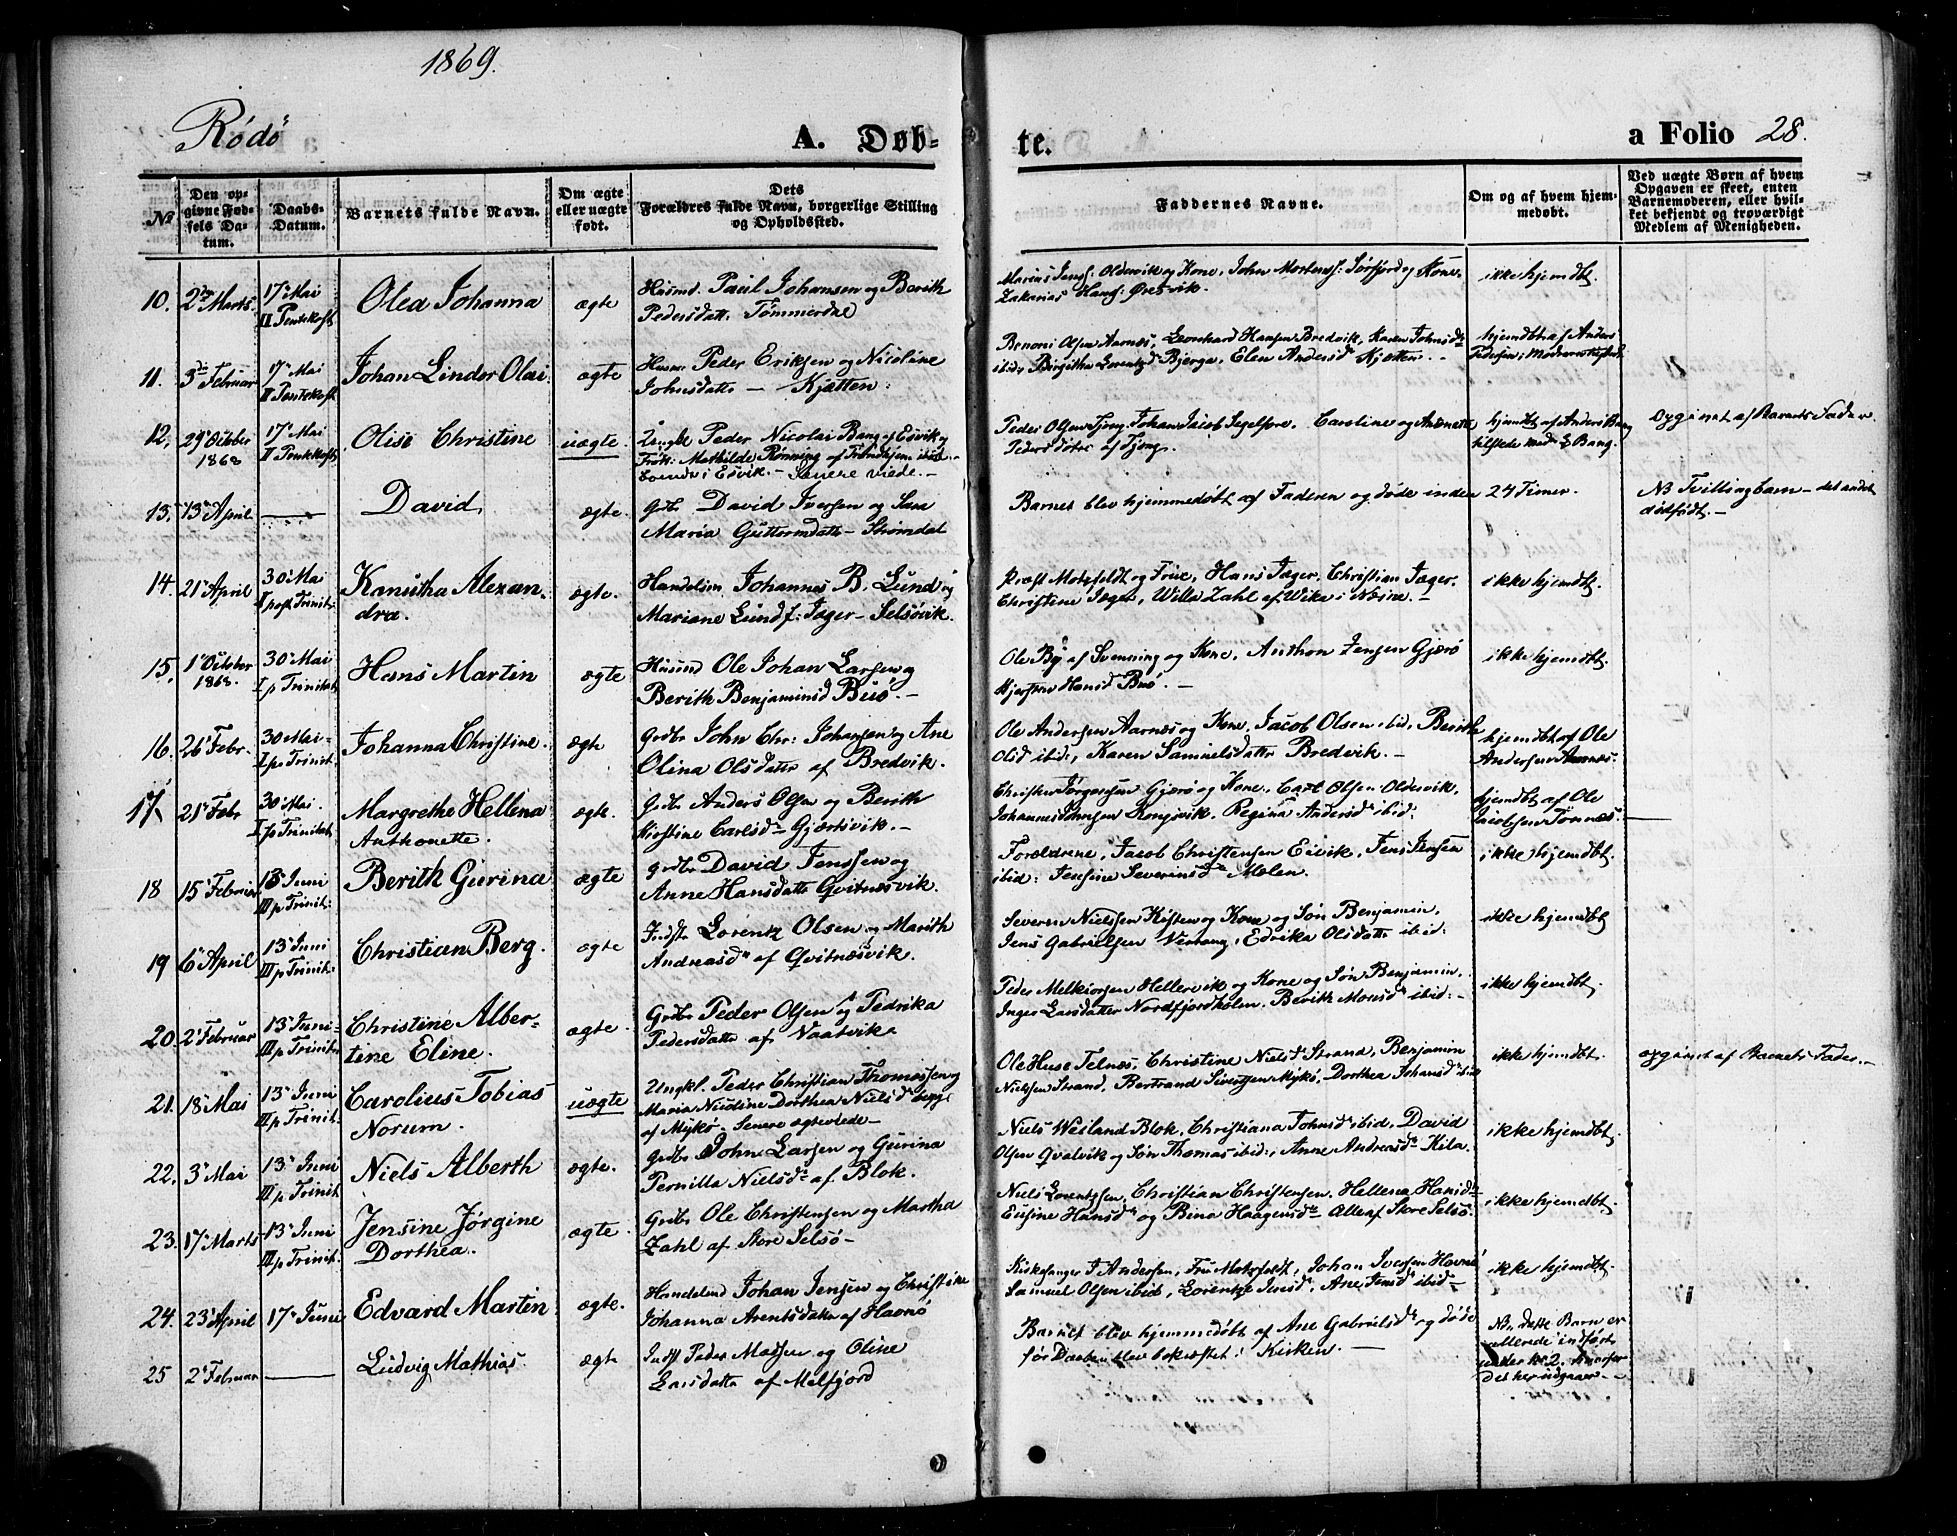 1869.
Rödö
A. Døb-
te.
a Folio 28.
No
Den op-
givne Fød-
sels Da-
tum.
Daabs-
Datum.
Barnets fulde Navn.
Om ægte
eller uægte
født.
Dets
Forældres fulde Navn, borgerlige Stilling
og Opholdssted.
Faddernes Navne.
Om og af hvem hjem-
medøbt.
Ved uægte Børn af hvem
Opgaven er skeet, enten
Barnemoderen, eller hvil-
ket bekjendt og troværdigt
Medlem af Menigheden.
10. 2den Marts 17de Mai
II Pentekost
Olea Johanna
ægte
Husmd. Paul Johansen og Berith
Pedersdatt: Tømmerdal
Marius Jensf: Oldervik og Kone, John Mortensf: Sørfjord og Kone,
Zakarias Hansf: Øresvik.
ikke hjemdbt.
11. 3de Februar 17de Mai
II Pentekost
Johan Linder Olai
ægte
Husm: Peder Eriksen og Nicoline
Johnsdatt. - Kjætten:
Benoni Olsen Aarnæs, Leonhard Hansen Bredvik, Karen Johnsdtr
ibid, Birgitha Lorentzd Bjerga, Elen Andersd Kjætten. -
hjemdbt af Anders
Pedersen i Moderens
12. 29 October
1868
17de Mai
II Pentekost
Olise Christine
uægte
Ungkl Peder Nicolai Bang af Esvik og
Frøk: Mathilde Rønning af Trondhjem
boende i Esvik - Senere viede. -
Peder Olsen Tjong, Johan Jacob Segelfore, Caroline og
Pedersdøtre af Tjong.
hjemdbt af Anders Bang
tilstede Bang.
Opgivet af Barnets Fader.
13. 13de April
David
ægte.
Gdb David Iversen og Sara
Maria Guttormdatt - Strømdal
Barnet blev hjemmedøbt af Faderen og døde inden 24 Timer.
NB Tvillingbarn - det andet
dødfødt. -
14. 21 April 30 Mai
I post Trinit:
Kanutha Alexan-
dra.
ægte.
Handelsm Johannes B. Lund og
Mariane Lund f: Jæger - Selsövik.
Præst Motzfeldt og Frue, Hans Jæger, Christian Jæger,
Christine Jæger, Willa Zahl af Wika i Næsne. -
ikke hjemdbt.
15. 1 October
1868.
30 Mai
I p Trinitat
Hans Martin
ægte
Husmd Ole Johan Larsen og
Berith Benjaminsd Buö. -
Ole By af Svenning og Kone, Anthon Jensen Gjærö
Hansd Buö. -
ikke hjemdbt.
16. 26 Febr. 30 Mai
I p Trinit:
Johanna Christine.
ægte
Grdbr John Chr: Johansen og Ane
Olina Olsdatter af Bredvik.
Ole Andersen Aarnæs og Kone, Jacob Olsen ibid, Berith
Olsd ibid, Karen Samuelsdatter Bredvik. -
hjemdbt af Ole
Andersen Aarnæs.
17. 21 Febr 30 Mai.
I p Trinitat.
Margrethe Hellena
Anthonette.
ægte.
Grdbr Anders Olsen og Berith
Kirstine Carlsdr Gjærsvik. -
Christen Jørgensen Gjærö og Kone, Carl Olsen Oldervik,
Johannes Kongsvik, Regina Andersdr ibid.
hjemdbt af Ole
Jacobsen Tonnæs.
18 15 Februar 13 Juni
III p Trinit:
Berith Gurina
ægte
Grdbr David Jenssen og
Anne Hansdatt: Qvitnæsvik.
Forældrene, Jacob Christensen Eivik, Jens Jensen
ibid: Jensine Severinsdr Melen.
ikke hjemdbt.
19 6 April 13 Juni
III p Trinit:
Christian Berg.
ægte
Indst Lorentz Olsen og Marith
Andreasdr af Qvitnæsvik.
Severin Nielssen Kisten og Kone og Søn Benjamin,
Jens Gabrielsen Værang, Edrika Olsdatter ibid:
ikke hjemdbt
20. 2 Februar 13 Juni
III p Trinit:
Christine Alber-
tine Eline.
ægte
Grdbr Peder Olsen og Pedrika
Pedersdatter af Vaatvik
Peder Melkiorsen Hellervik og Kone og Søn Benjamin,
Inger Larsdatter Nordfjordholm, Berith Monsdr ibid: -
ikke hjemdbt.
21. 18 Mai 13 Juni
III p Trinit:
Carolius Tobias
Norum.
uægte
Ungkl. Peder Christian Thomassen og
Maria Nicoline Dorthea Nielsd begge
af Mykö. Senere ægteviede -
Ole Huse Telnæs, Christine Nielsd Strand, Benjamin
Nielssen Strand, Bertrand Sivertsen Mykö, Dorthea Johansd ibid
ikke hjemdbt.
opgivet af Barnets Fader. -
22. 3 Mai 13 Juni
III p Trinit
Niels Alberth
ægte.
Grdbr John Larsen og Gurina
Pernilla Nielsdr af Blok.
Niels Weiland Blok, Christiana Johnsd ibid, David
Olsen Qvalvik og Søn Thomas ibid: Anne Andreasdr Kila
ikke hjemdbt.
23. 17 Marts 13 Juni
III p Trinit.
Jensine Jørgine
Dorthea.
ægte.
Grdbr Ole Christensen og Martha
Zahl af Store Selsö -
Niels Lorentzen, Christian Christensen, Hellena Hansdr
Eusine Hansdr og Bina Haagensdr Alle af Store Selsö.
ikke hjemdbt.
24. 23 April 17 Juni
Edvard Martin
ægte.
Handelsmd Johan Jensen og Christine
Johanna Arentsdatter af Havnö
Kirkesanger J Andersen, Fru Motzfeldt, Johan Iversen Havnö
Samuel Olsen ibid, Lorentze Jensd, Ane Jensdr ibid -
ikke hjemdbt.
25 2 Februar
Ludvig Mathias
ægte
Indst Peder Matsen og Oline
Larsdatter af Melfjord
Barnet blev hjemmedøbt af Ane Gabrielsdr og døde
før Daaben blev bekræftet i Kirken. -
NB, dette Barn er
allerede indført
under No 2, hvorfor
det her udgaaer. -